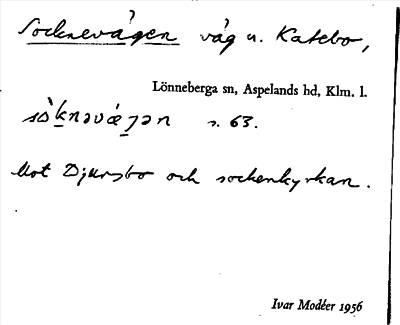 Socknevägen väg u. Katebo,
Lönneberga sn, Aspelands hd, Klm. l.
sòknəvæ̀gən s. 63.
Mot Djursbo och sockenkyrkan.
Ivar Modéer 1956